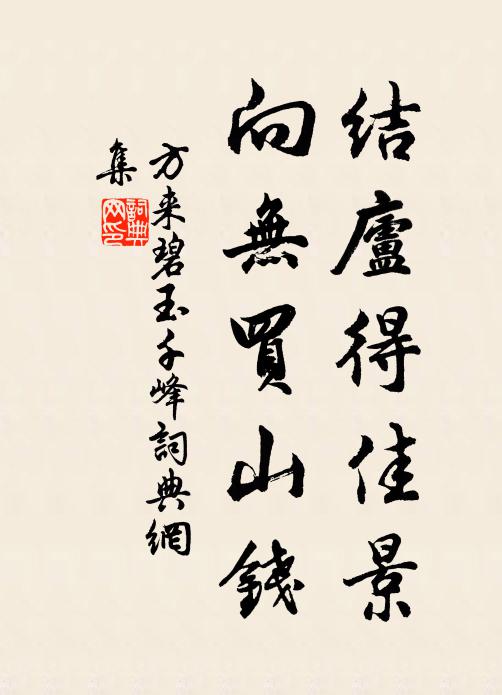 結廬得佳景
向無買山錢
方来碧玉千峰詞典網
集
詞典
网印